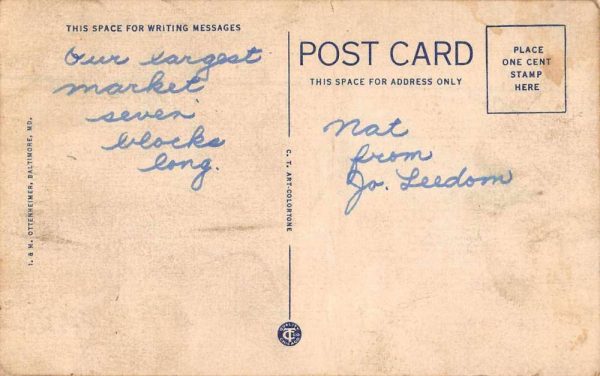 THIS SPACE FOR WRITING MESSAGES
Our largest
market
seven
blocks
long.
I. & M. OTTENHEIMER, BALTIMORE, MD.
C. T. ART-COLORTONE
POST CARD
THIS SPACE FOR ADDRESS ONLY
PLACE
ONE CENT
STAMP
HERE
Nat
from
Jo. Leedom
QUALITY
CT
CHICAGO